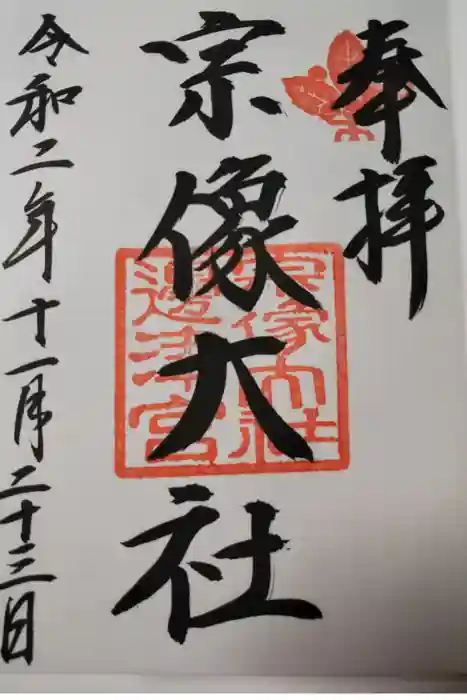 奉拝
宗像大社
宗像大社
邉津宮
令和二年十一月二十三日